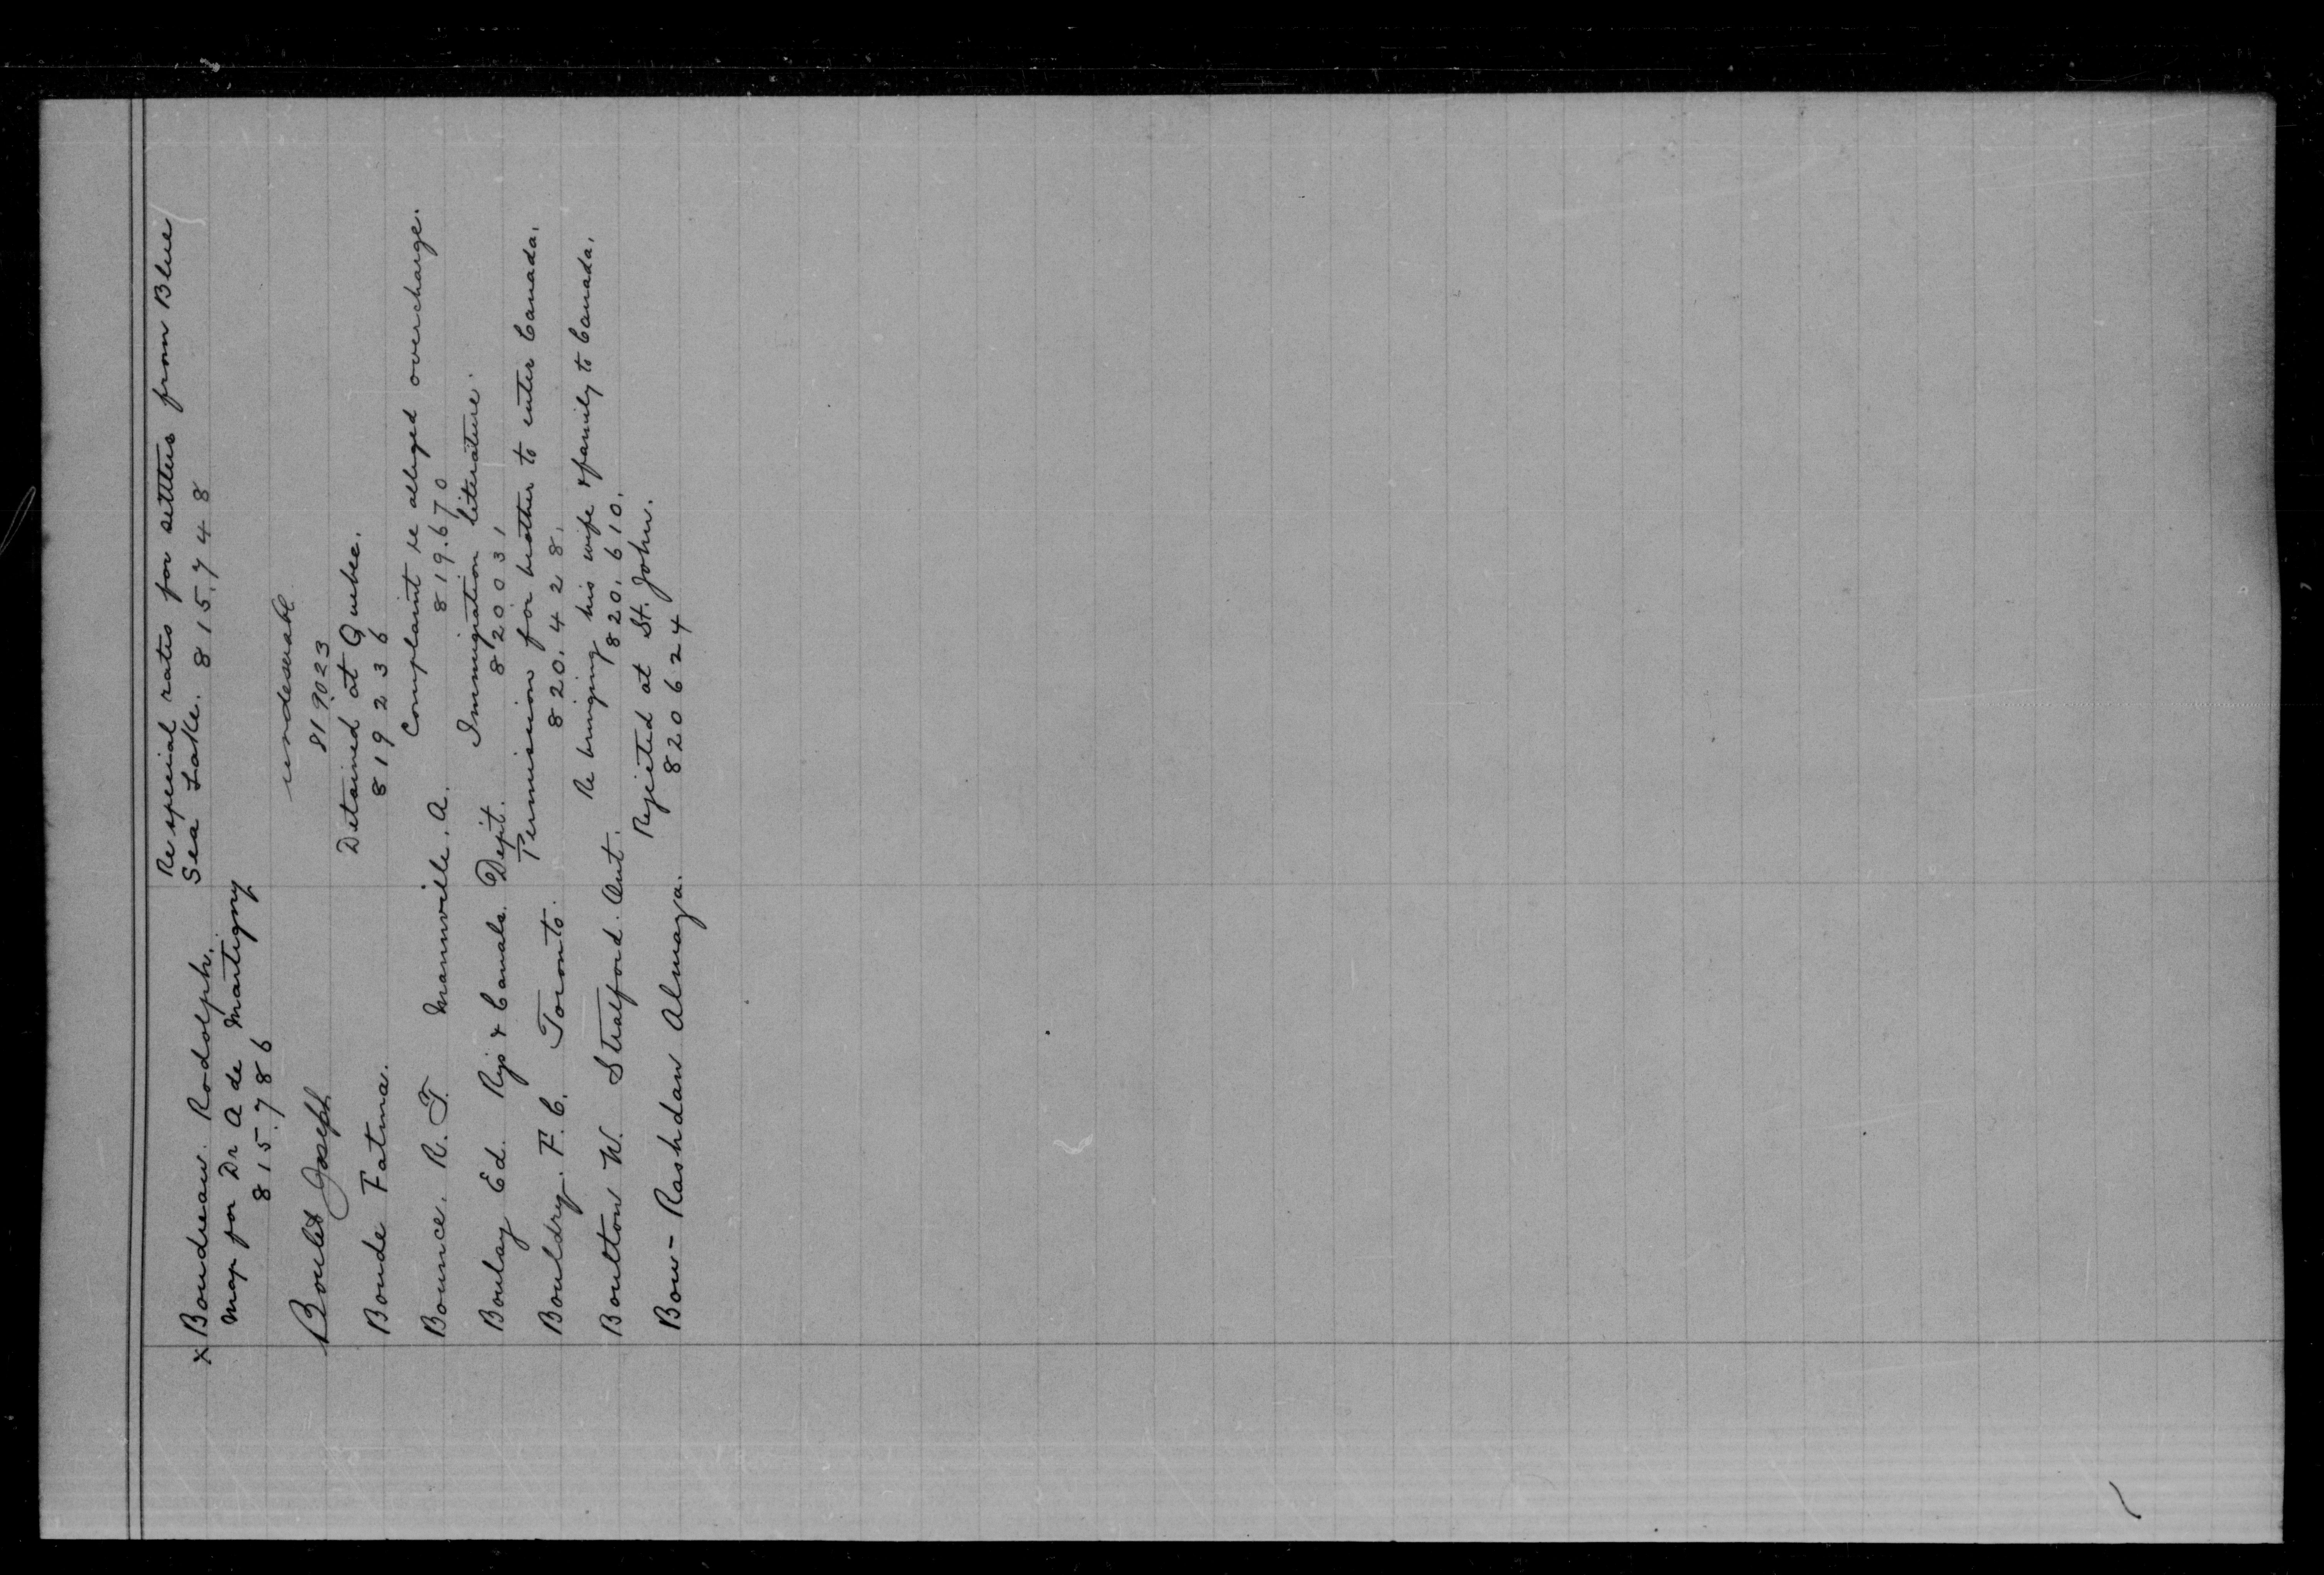 Re special rates for settlers from Blue
x Boudreau. Rodolph. Sea Lake. 815,748
Map for Dr A de Martigny
815.786
undeserable
Boulet Joseph
819023
Detained at Quebec.
Boude Fatma. 819236
Complaint re alleged overcharge.
Bounce. R. T. Mannville. A. 819.670
Immigration literature.
Boulay Ed. Rys & Canals. Dept. 820031
Permission for brother to enter Canada.
Bouldry. F. C. Toronto. 820.428.
Re bringing his wife & family to Canada.
Boulton W. Stratford. Ont. 820.610.
Rejected at St. John.
Bow-Rashdan Almaza. 820624